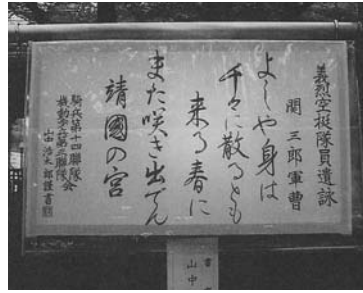 義烈空挺隊員遺詠
関 三郎軍曹
よしや身は
千々に散るとも
来る春に
また咲き出でん
靖國の宮
騎兵第十四聯隊会
機動歩兵第三聯隊会
山田浩太郎謹書
山中